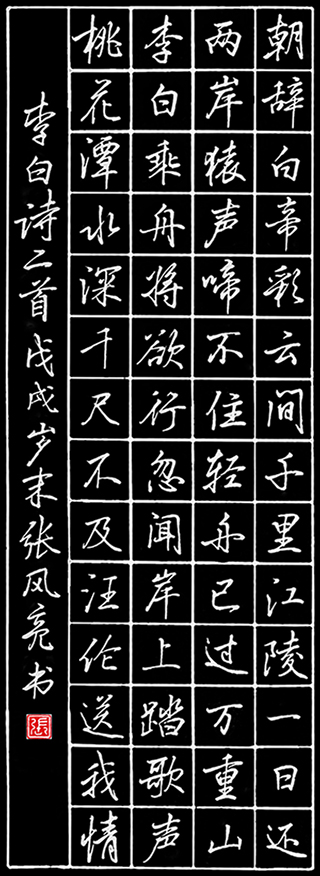 朝辞白帝彩云间千里江陵一日还
两岸猿声啼不住轻舟已过万重山
李白乘舟将欲行忽闻岸上踏歌声
桃花潭水深千尺不及汪伦送我情
李白诗二首戊戌岁末张风亮书
張